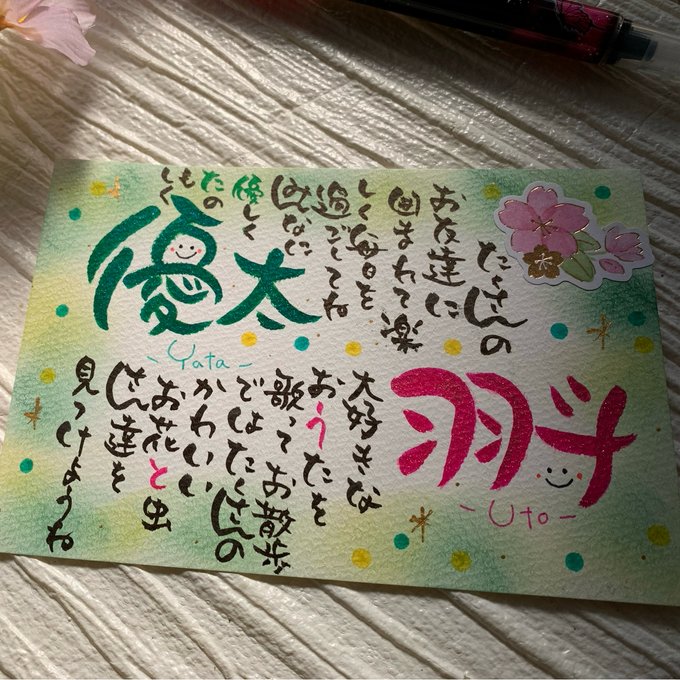 たくさんの
お友達に
囲まれて楽
しく毎日を
過ごしてね
みんなに
優しく
たの
もしく
優太
- Yuta -
羽斗
- Uto -
大好きな
おうたを
歌ってお散歩
ではたくさんの
かわいい
お花と虫
さん達を
見つけようね